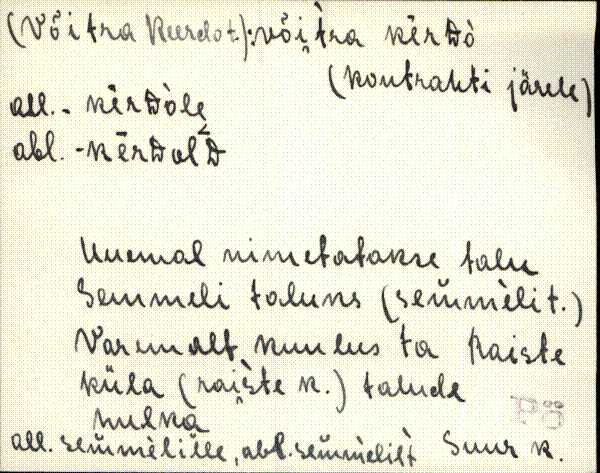 (Võitra Kurdot.): võitra kērDò
(kontrahti järele)
all. - kērDòle
abl. - kērDolD
Uuemal nimetatakse talu
Semmeli taluks (semmèlit.)
Varemalt kuulus ta Raiste
küla (raiste k.) talude
hulka
all. semmèlille, abl. semmèlilt Suur k.
Põ